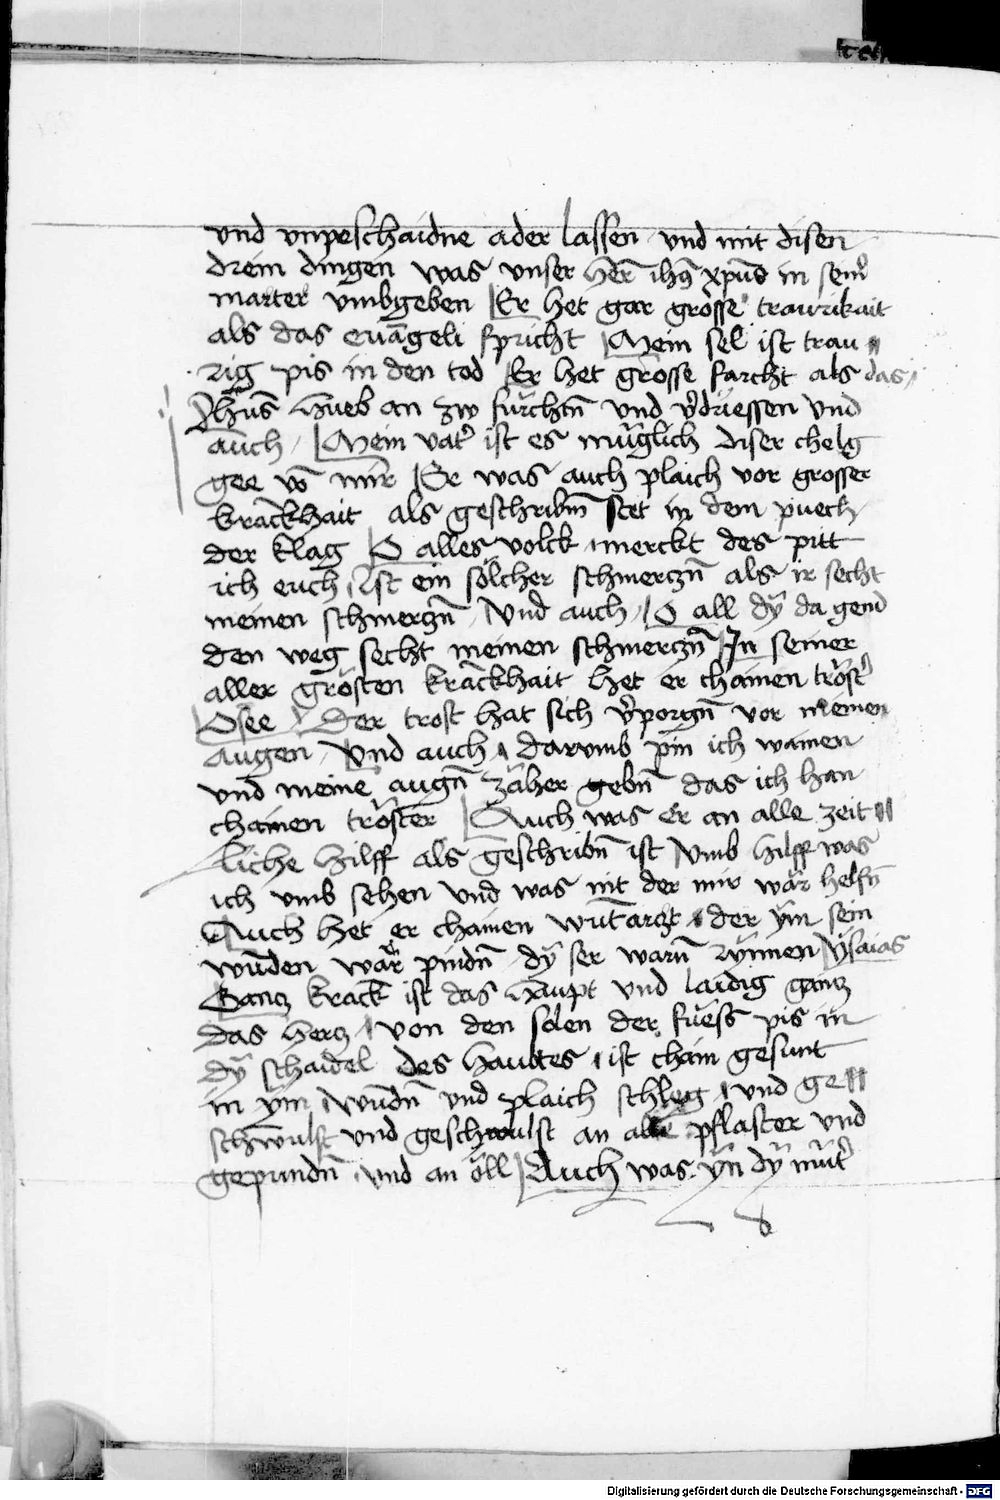 und unpeschaidne ader lassen und mit disen
drein dingen was unser her̄ ihs xpūs in sein̄
marter umbgeben Er het gar grosse traurikait
als das evāgeli spricht Mein sel ist trau
rig pis in den tod Er het grosse farcht als das
Jhūs hueb an zw fürchtn̄ und v̄druessen Und
auch Mein vat̄ ist es müglich diser chelg
gee vō mir Er was auch plaich vor grosser
kranckhait als geschribm̄ stet in dem puech
der klag O alles volck merckt des pitt
ich euch ist ein sölcher schmerczn̄ als ir secht
meinen schmerczn̄ Und auch O all dÿ da gend
den weg secht meinen schmerczn̄ In seiner
aller grösten kranckhait het er chainen tröst̄
Osee Der trost hat sich v̄porgn̄ vor meinen
augen Und auch darumb pin ich wainen
und meine augn̄ zäher gebn̄ das ich han
chainen tröster Auch was er an alle zeit
liche hilff als geschribn̄ ist Umb hilff was
ich umb sehen und was nit der mir wär helfn̄
Auch het er chainen wūtarczt der ÿm sein
wunden wär pindn̄ dÿ ser warn̄ rÿnnen Ÿsaias
Gancz kranck ist das haupt und laidig gancz
das hercz von den solen der fuess pis in
dÿ schaidel des haubtes ist chain gesunt
in ÿm wundn̄ und plaich schleg und ge
schwulst und geschwulst an alle pflaster und
gepundn̄ und an öll Auch was ÿn dÿ mūt̄
Digitalisierung gefördert durch die Deutsche Forschungsgemeinschaft - DFG